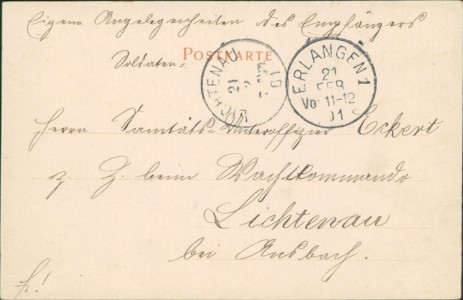 Eigene Angelegenheiten des Empfängers
Soldaten-
POSTKARTE
LICHTENAU
21
2
01
ERLANGEN 1
21
FEB
Vor 11-12
01
Herrn Sanitäts-Unteroffizier Eckert
z. Z. beim Wachtkommando
Lichtenau
bei Ansbach.